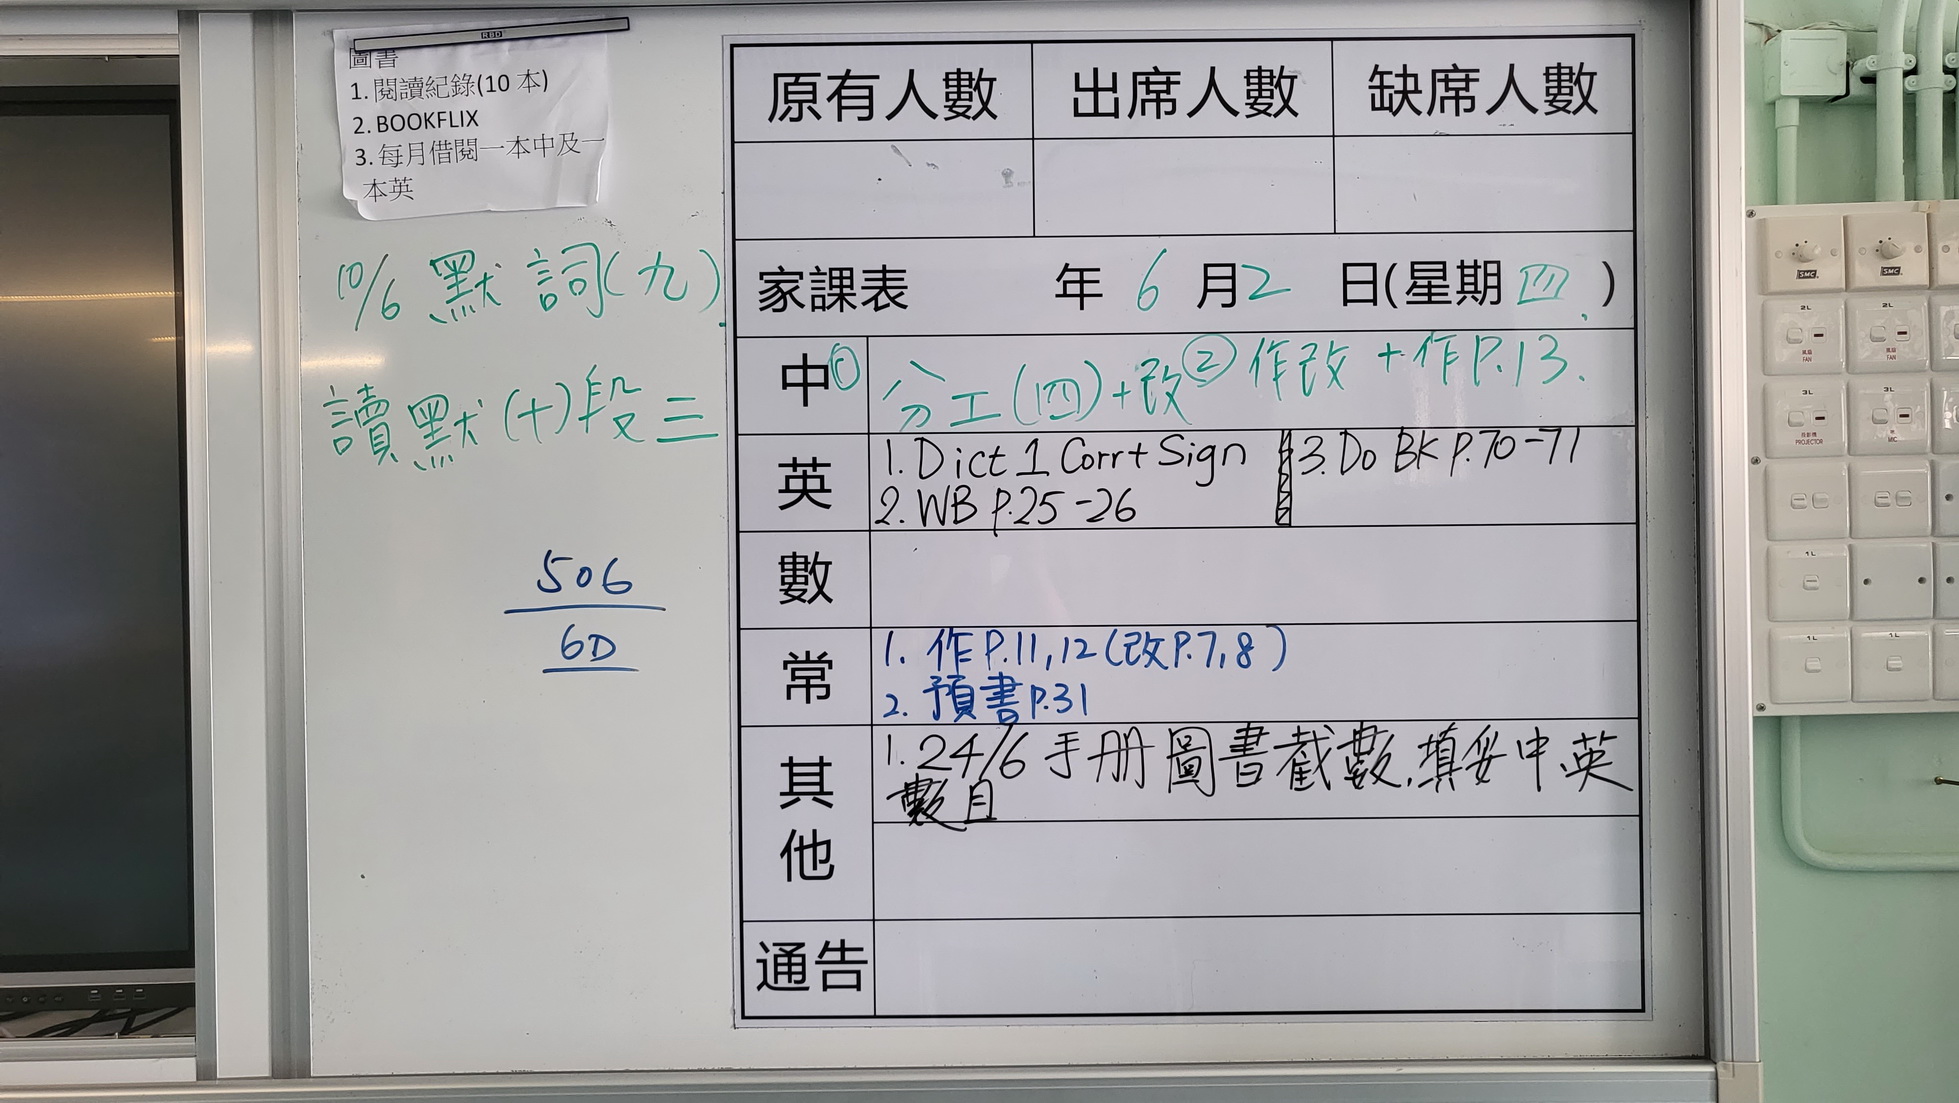 RBD
圖書
1. 閱讀紀錄(10 本)
2. BOOKFLIX
3. 每月借閱一本中及一
本英
10/6 默詞(九)
讀默(十)段三
506
6D
原有人數 出席人數 缺席人數
家課表 年 6 月 2 日(星期 四 )
中 ① 分工(四)+改 ② 作改+作P.13.
英 1. Dict 1 Corr+Sign 3. Do BK P.70-71
2. WB P.25-26
數
常 1. 作P.11,12(改P.7,8)
2. 預書P.31
其他 1. 24/6 手册圖書截數,填妥中、英
數目
通告
SMC SMC
2L 2L
風扇 風扇
FAN FAN
3L 3L
投影機
PROJECTOR MIC
1L
1L 1L